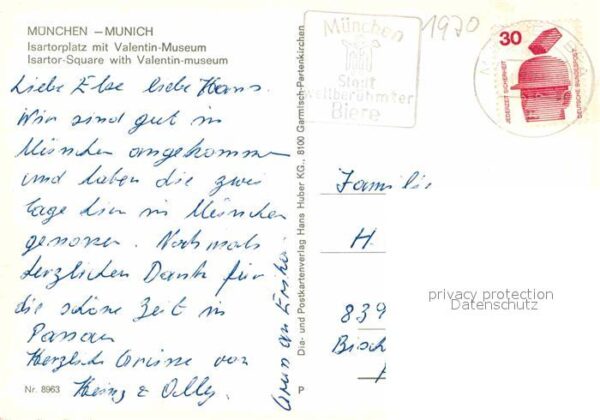 MÜNCHEN – MUNICH
Isartorplatz mit Valentin-Museum
Isartor-Square with Valentin-museum
Liebe Else liebe Hans.
Wir sind gut in
München angekommen
und haben die zwei
Tage hier in München
genossen. Nochmals
herzlichen Dank für
die schöne Zeit in
Passau
Herzliche Grüsse von
Heinz &
Gruss an
Nr. 8963
P
Dia- und Postkartenverlag Hans Huber KG., 8100 Garmisch-Partenkirchen
München
Stadt
weltberühmter
Biere
1970
30
JEDERZEIT SICHERHEIT
DEUTSCHE BUNDESPOST
Familie
H
839
Bisch
privacy protection
Datenschutz